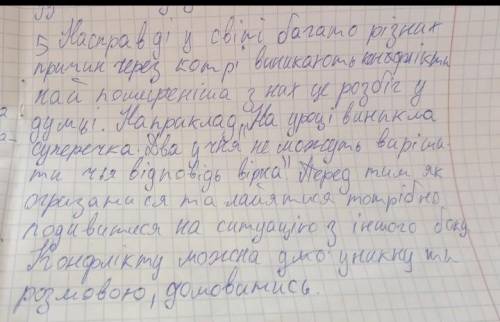 5 Насправді у світі багато різних
причин через котрі виникають конфлікти
най поширеніша з них це розбіг у
думці. Наприклад „На уроці виникла
суперечка. Два учня не можуть виріши-
ти чья відповідь вірна" Перед тим як
огризатися та лайятися потрібно
подивитися на ситуацію з іншого боку
Конфлікту можна уникнути
розмовою, домовитись.